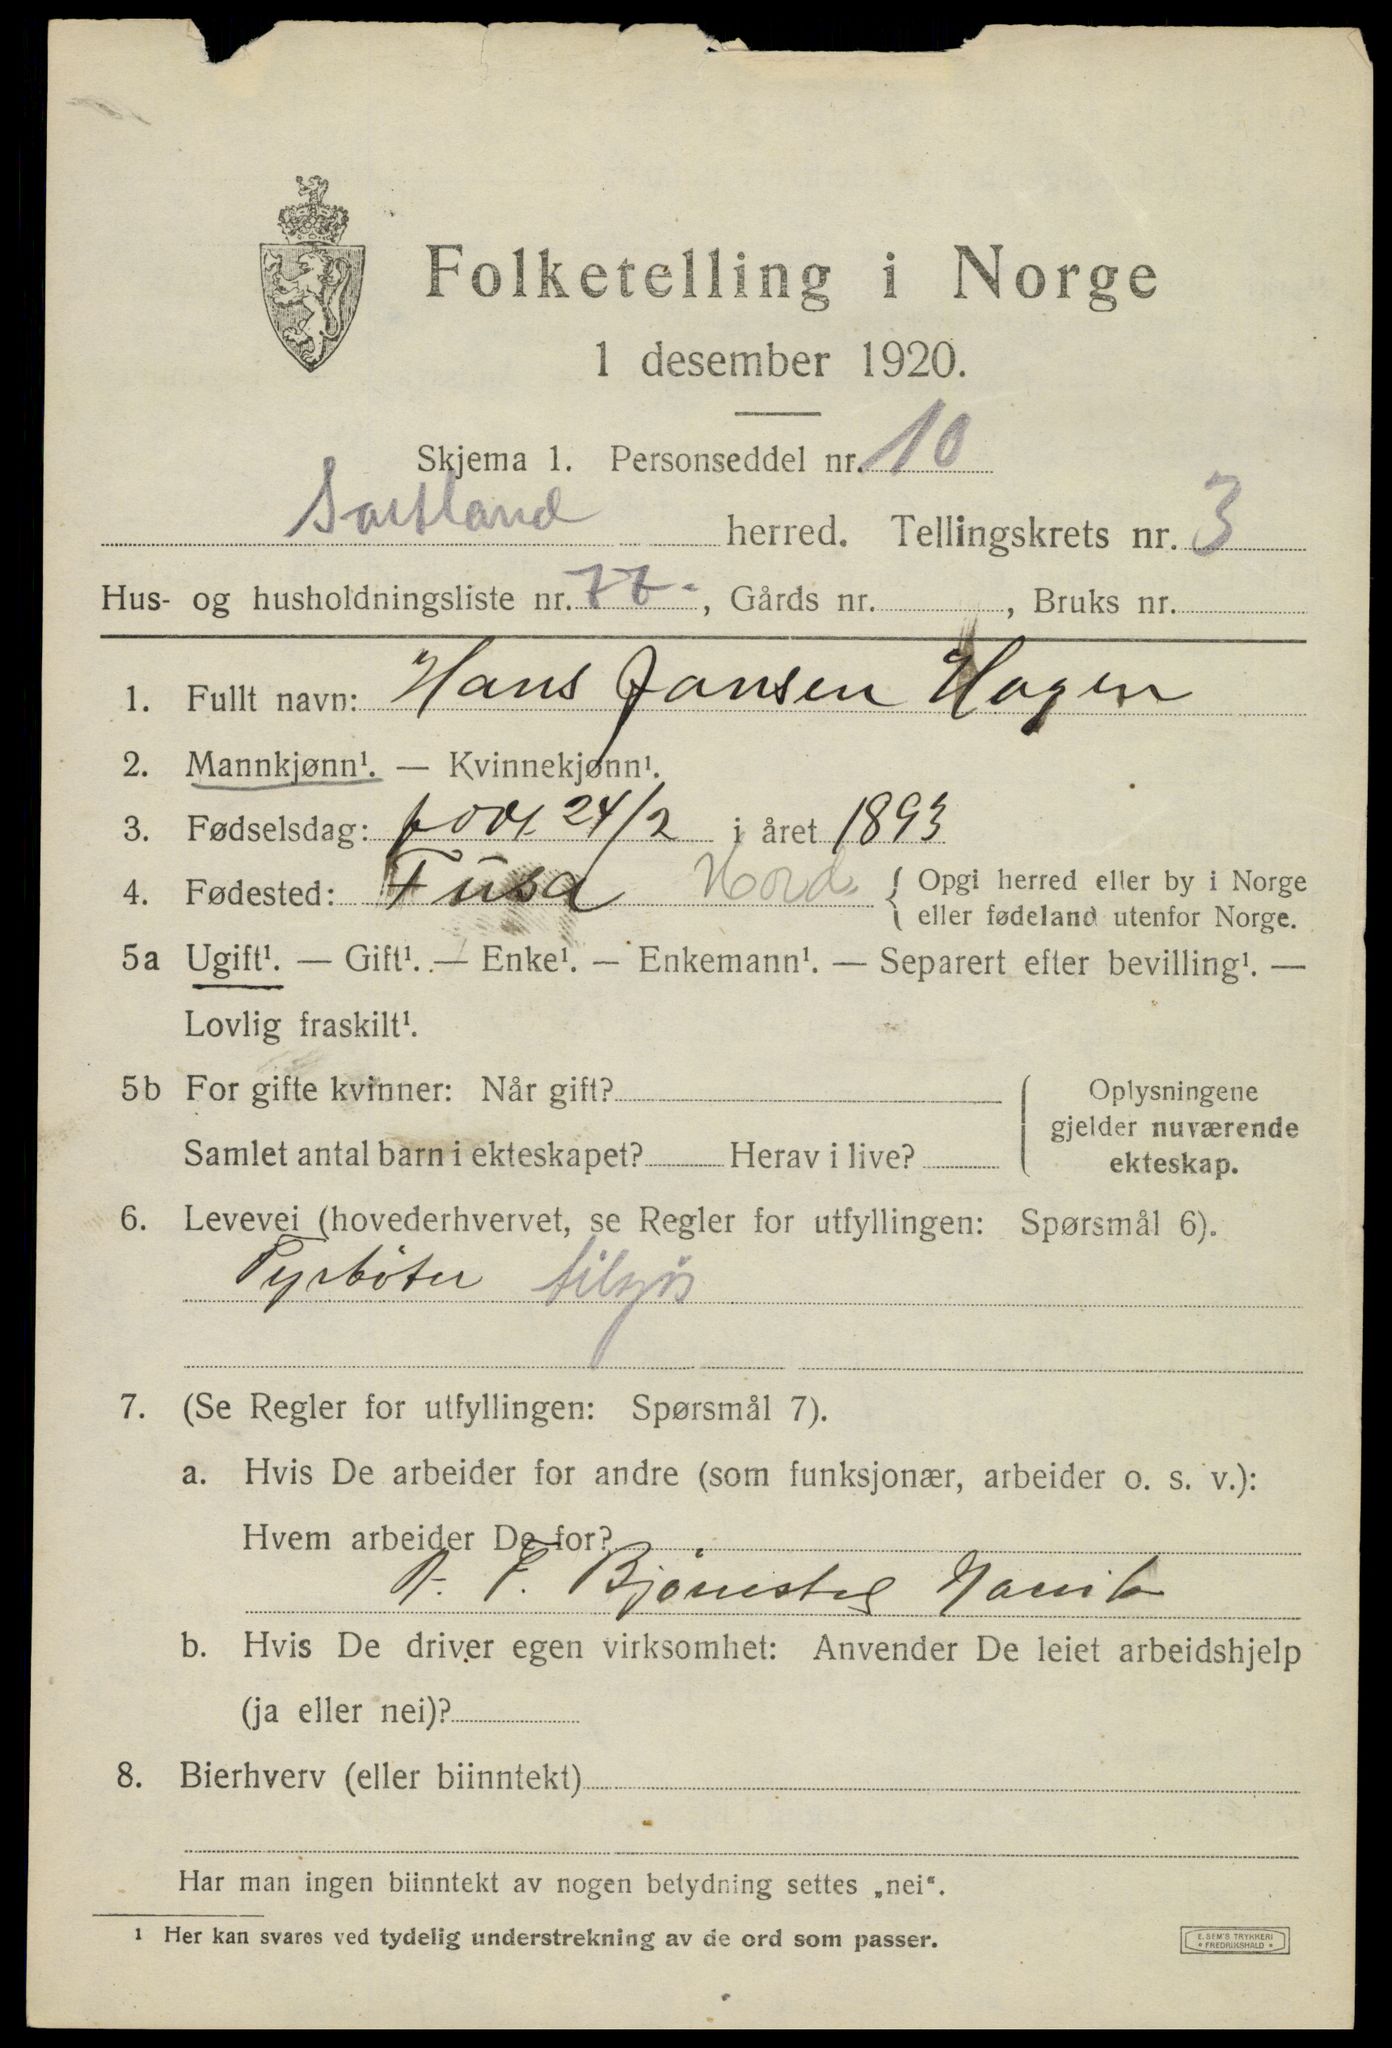 Folketelling i Norge
1 desember 1920.
Skjema 1. Personseddel nr. 10
Sortland herred. Tellingskrets nr. 3
Hus- og husholdningsliste nr. 77-, Gårds nr. , Bruks nr.
1. Fullt navn: Hans Jansen Hagen
2. Mannkjønn¹. — Kvinnekjønn¹.
3. Fødselsdag: født 24/2 i året 1893
4. Fødested: Fusa Hord { Opgi herred eller by i Norge
eller fødeland utenfor Norge.
5a Ugift¹. — Gift¹. — Enke¹. — Enkemann¹. — Separert efter bevilling¹. —
Lovlig fraskilt¹.
5b For gifte kvinner: Når gift? { Oplysningene
gjelder nuværende
Samlet antal barn i ekteskapet? Herav i live? ekteskap.
6. Levevei (hovederhvervet, se Regler for utfyllingen: Spørsmål 6).
Fyrbøter
7. (Se Regler for utfyllingen: Spørsmål 7).
a. Hvis De arbeider for andre (som funksjonær, arbeider o. s. v.):
Hvem arbeider De for?
F.
b. Hvis De driver egen virksomhet: Anvender De leiet arbeidshjelp
(ja eller nei)?
8. Bierhverv (eller biinntekt)
Har man ingen biinntekt av nogen betydning settes „nei“.
¹ Her kan svares ved tydelig understrekning av de ord som passer.
E. SEM'S TRYKKERI
• FREDRIKSHALD •